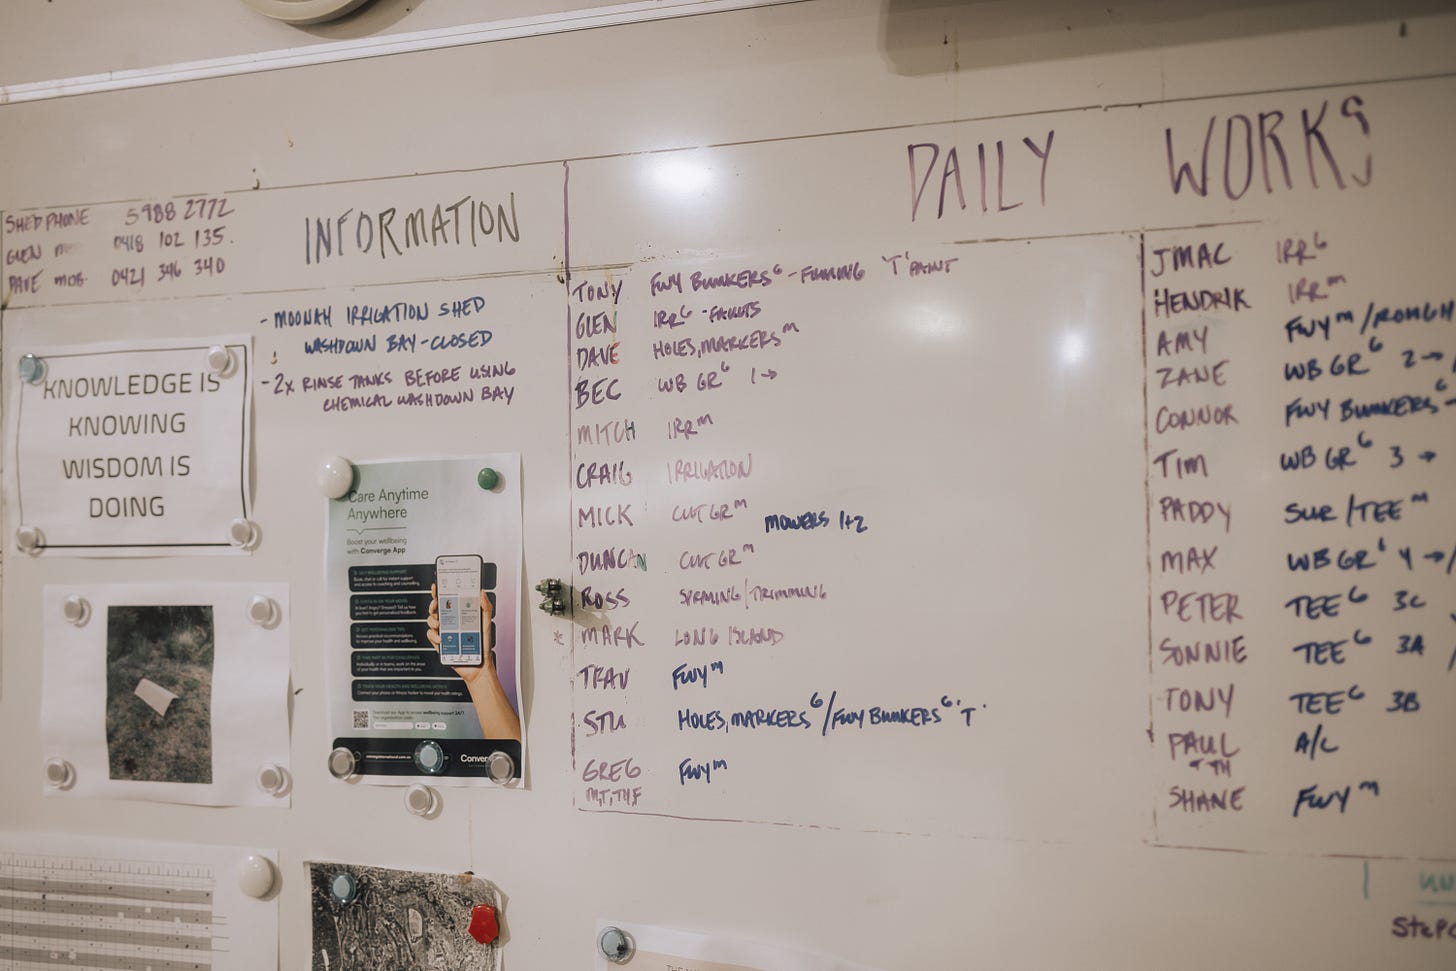 SHED PHONE 5988 2772
GLEN 0418 102 135.
DAVE MOB. 0421 346 340
INFORMATION
- MOONAH IRRIGATION SHED
WASHDOWN BAY - CLOSED
- 2x RINSE TANKS BEFORE USING
CHEMICAL WASHDOWN BAY
KNOWLEDGE IS
KNOWING
WISDOM IS
DOING
Care Anytime
Anywhere
Boost your wellbeing
with Converge App
Conver
DAILY WORKS
TONY FWY BUNKERS G - 'T' PAINT
GLEN IRR G - FAULTS
DAVE HOLES, MARKERS M
BEC WB GR G 1→
MITCH IRR M
CRAIG IRRIGATION
MICK CUT GR M MOWERS 1+2
DUNCAN CUT GR M
ROSS SPRAYING/TRIMMING
* MARK LONG ISLAND
TRAV FWY M
STU HOLES, MARKERS G/FWY BUNKERS G 'T'
GREG FWY M
M,T,TH,F
JMAC IRR G
HENDRIK IRR M
AMY FWY M/ROUGH
ZANE WB GR G 2→
CONNOR FWY BUNKERS G -
TIM WB GR G 3→
PADDY SUR/TEE M
MAX WB GR G 4→/
PETER TEE G 3C
SONNIE TEE G 3A /
TONY TEE G 3B
PAUL A/C
T TH
SHANE FWY M